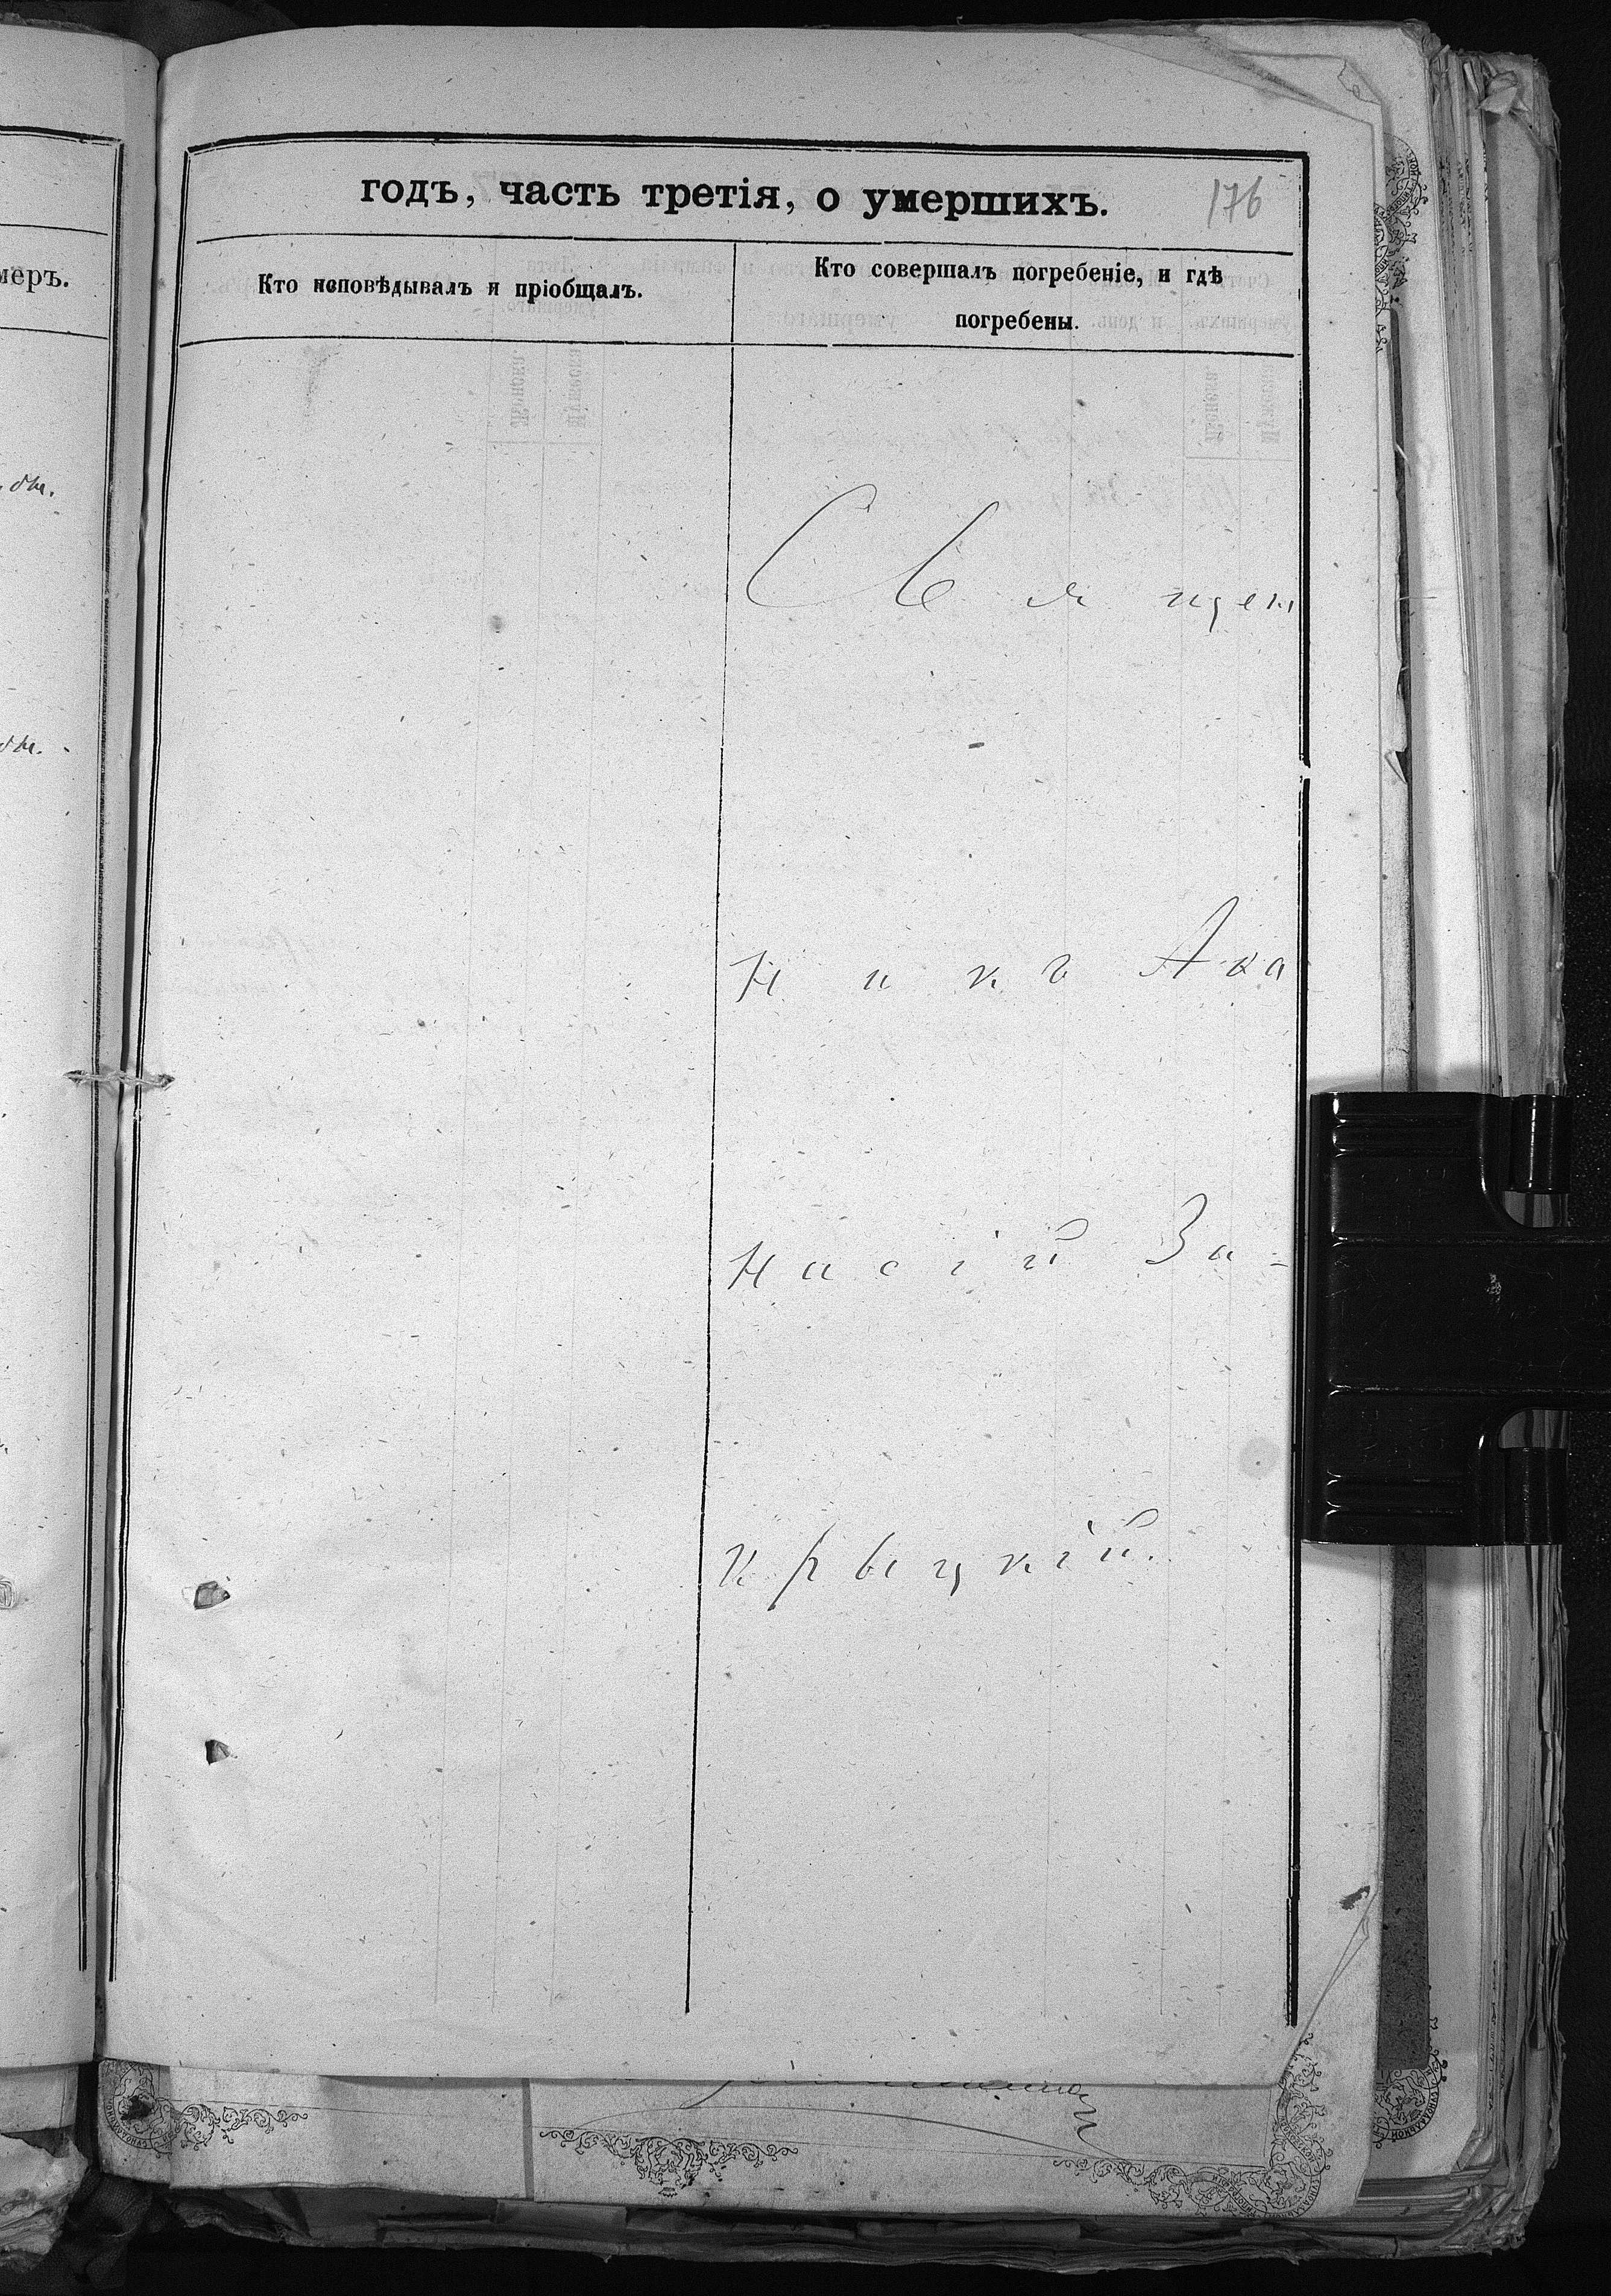 годъ, часть третія, о умершихъ.
176
меръ.
Кто исповѣдывалъ и пріобщалъ.
Кто совершалъ погребеніе, и гдѣ
погребены.
Священ
никъ Ака
насій За-
крыцкій.